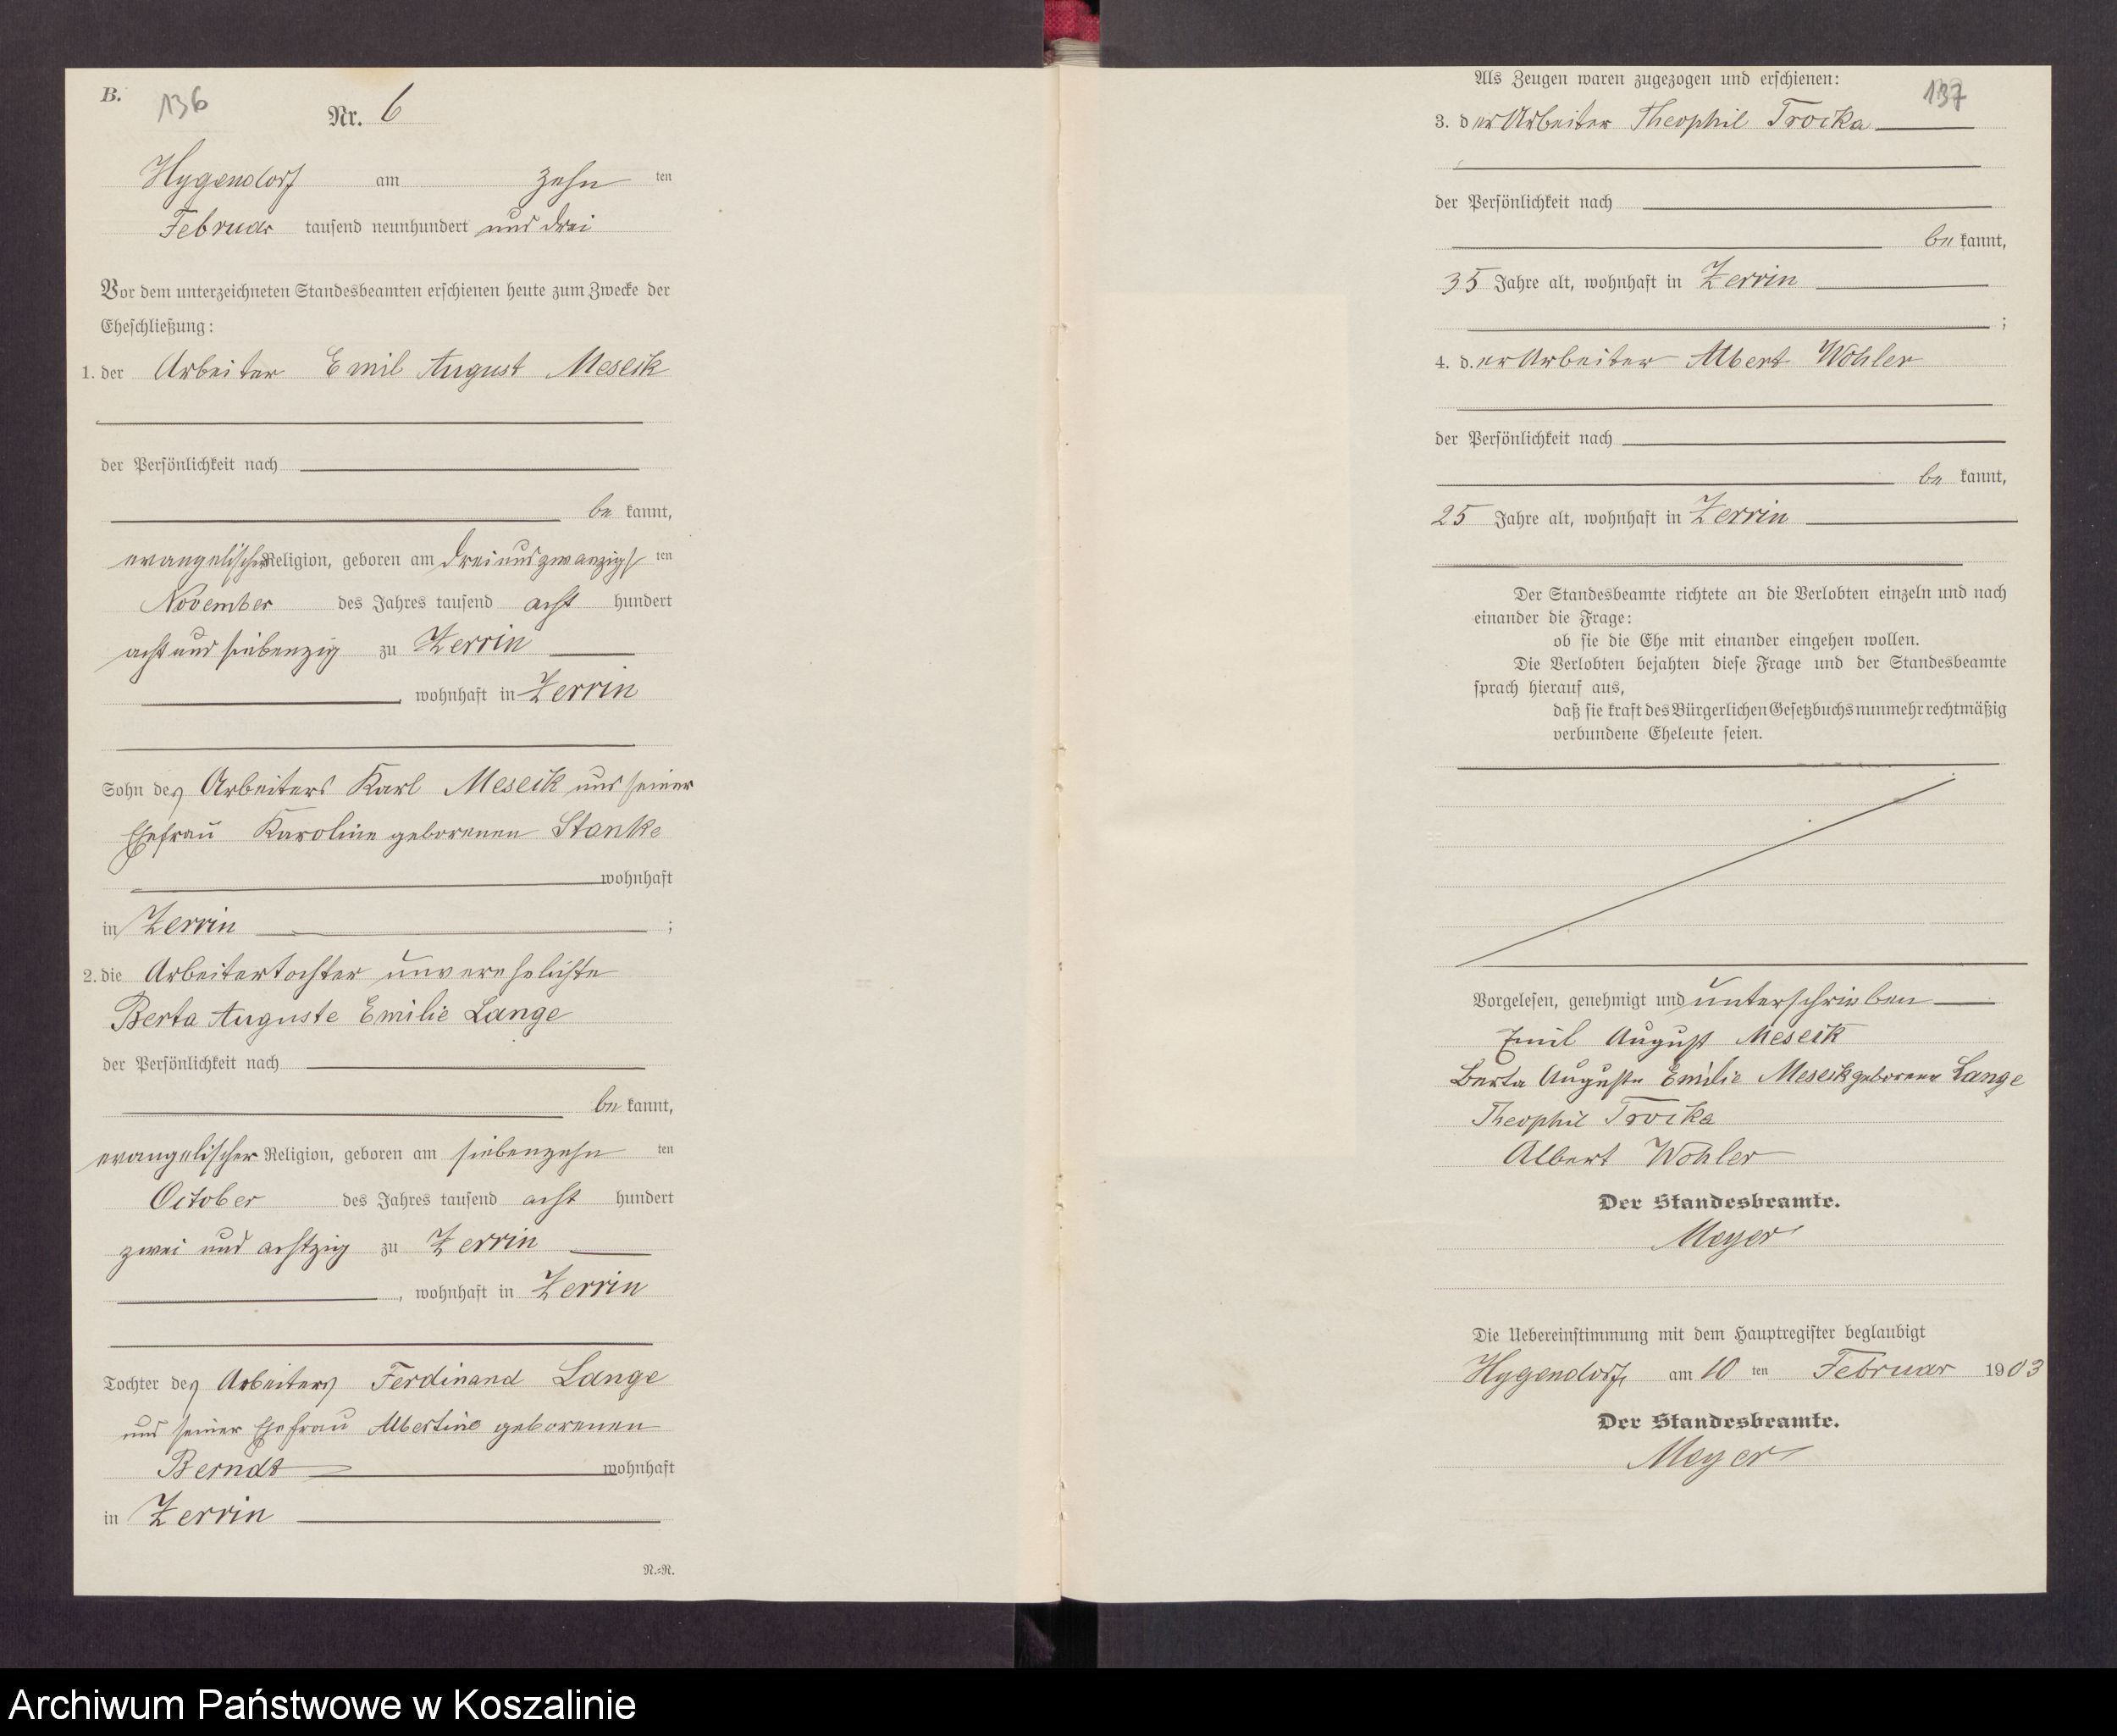 B. 136
Nr. 6
Hygendorf am zehn ten
Februar tausend neunhundert und drei
Vor dem unterzeichneten Standesbeamten erschienen heute zum Zwecke der
Eheschließung:
1. der Arbeiter Emil August Meseck
der Persönlichkeit nach
be kannt,
evangelischer Religion, geboren am dreiundzwanzigs ten
November des Jahres tausend acht hundert
acht und siebenzig zu Zerrin
, wohnhaft in Zerrin
Sohn des Arbeiters Karl Meseck und seiner
Ehefrau Karoline geborenen Stanke
wohnhaft
in Zerrin ;
2. die Arbeitertochter unverehelichte
Berta Auguste Emilie Lange
der Persönlichkeit nach
be kannt,
evangelischer Religion, geboren am siebenzehn ten
October des Jahres tausend acht hundert
zwei und achtzig zu Zerrin
, wohnhaft in Zerrin
Tochter des Arbeiters Ferdinand Lange
und seiner Ehefrau Albertine geborenen
Berndt wohnhaft
in Zerrin
N.=N.
Als Zeugen waren zugezogen und erschienen:
137
3. der Arbeiter Theophil Trocka
der Persönlichkeit nach
be kannt,
35 Jahre alt, wohnhaft in Zerrin
;
4. der Arbeiter Albert Wohler
der Persönlichkeit nach
be kannt,
25 Jahre alt, wohnhaft in Zerrin
Der Standesbeamte richtete an die Verlobten einzeln und nach
einander die Frage:
ob sie die Ehe mit einander eingehen wollen.
Die Verlobten bejahten diese Frage und der Standesbeamte
sprach hierauf aus,
daß sie kraft des Bürgerlichen Gesetzbuchs nunmehr rechtmäßig
verbundene Eheleute seien.
Vorgelesen, genehmigt und unterschrieben
Emil August Meseck
Berta Auguste Emilie Meseck geborene Lange
Theophil Trocka
Albert Wohler
Der Standesbeamte.
Meyer
Die Uebereinstimmung mit dem Hauptregister beglaubigt
Hygendorf, am 10 ten Februar 1903
Der Standesbeamte.
Meyer
Archiwum Państwowe w Koszalinie